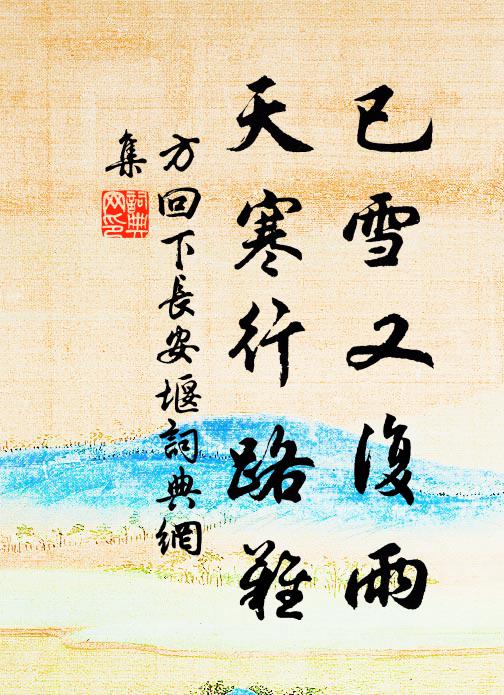 已雪又復雨
天寒行路難
方回下長安堰詞典網
集
詞典
网印